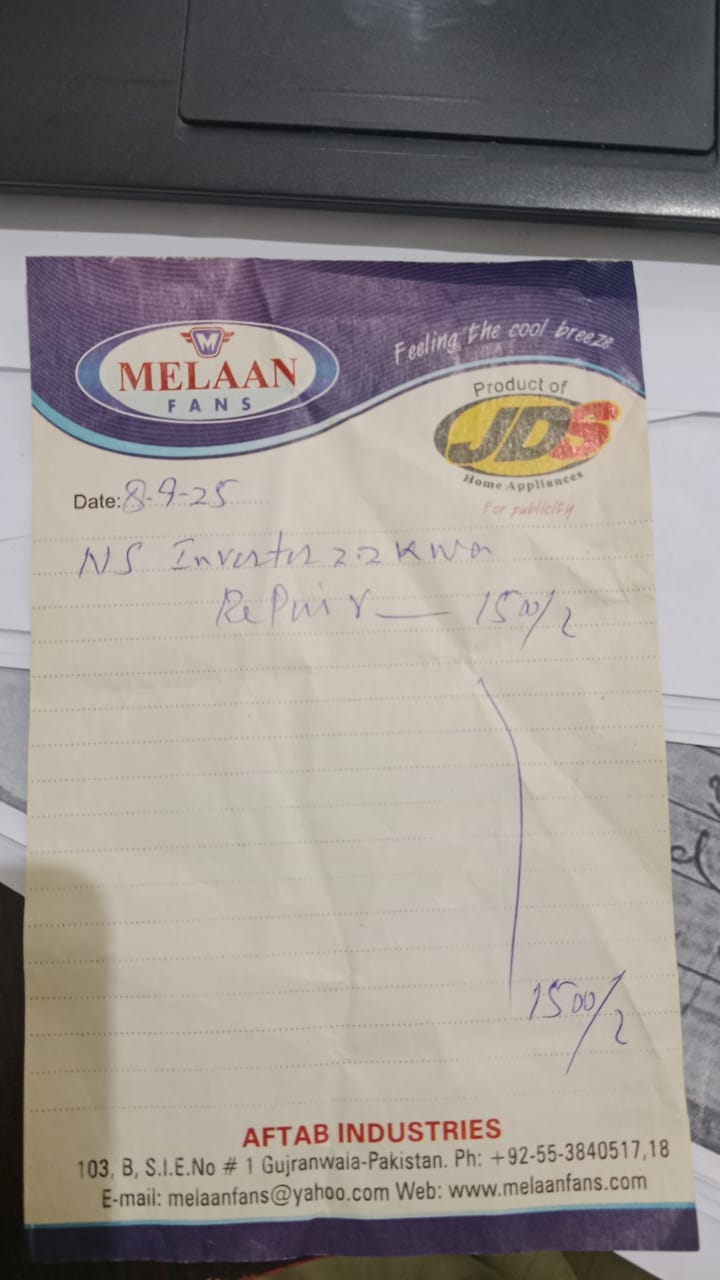 M
MELAAN
FANS
Feeling the cool breeze
Product of
JDS
Home Appliances
For publicity
Date: 8-9-25
NS Inverter 2.2 KWa
RePair — 1500/2
1500/2
AFTAB INDUSTRIES
103, B, S.I.E.No # 1 Gujranwala-Pakistan. Ph: +92-55-3840517,18
E-mail: melaanfans@yahoo.com Web: www.melaanfans.com